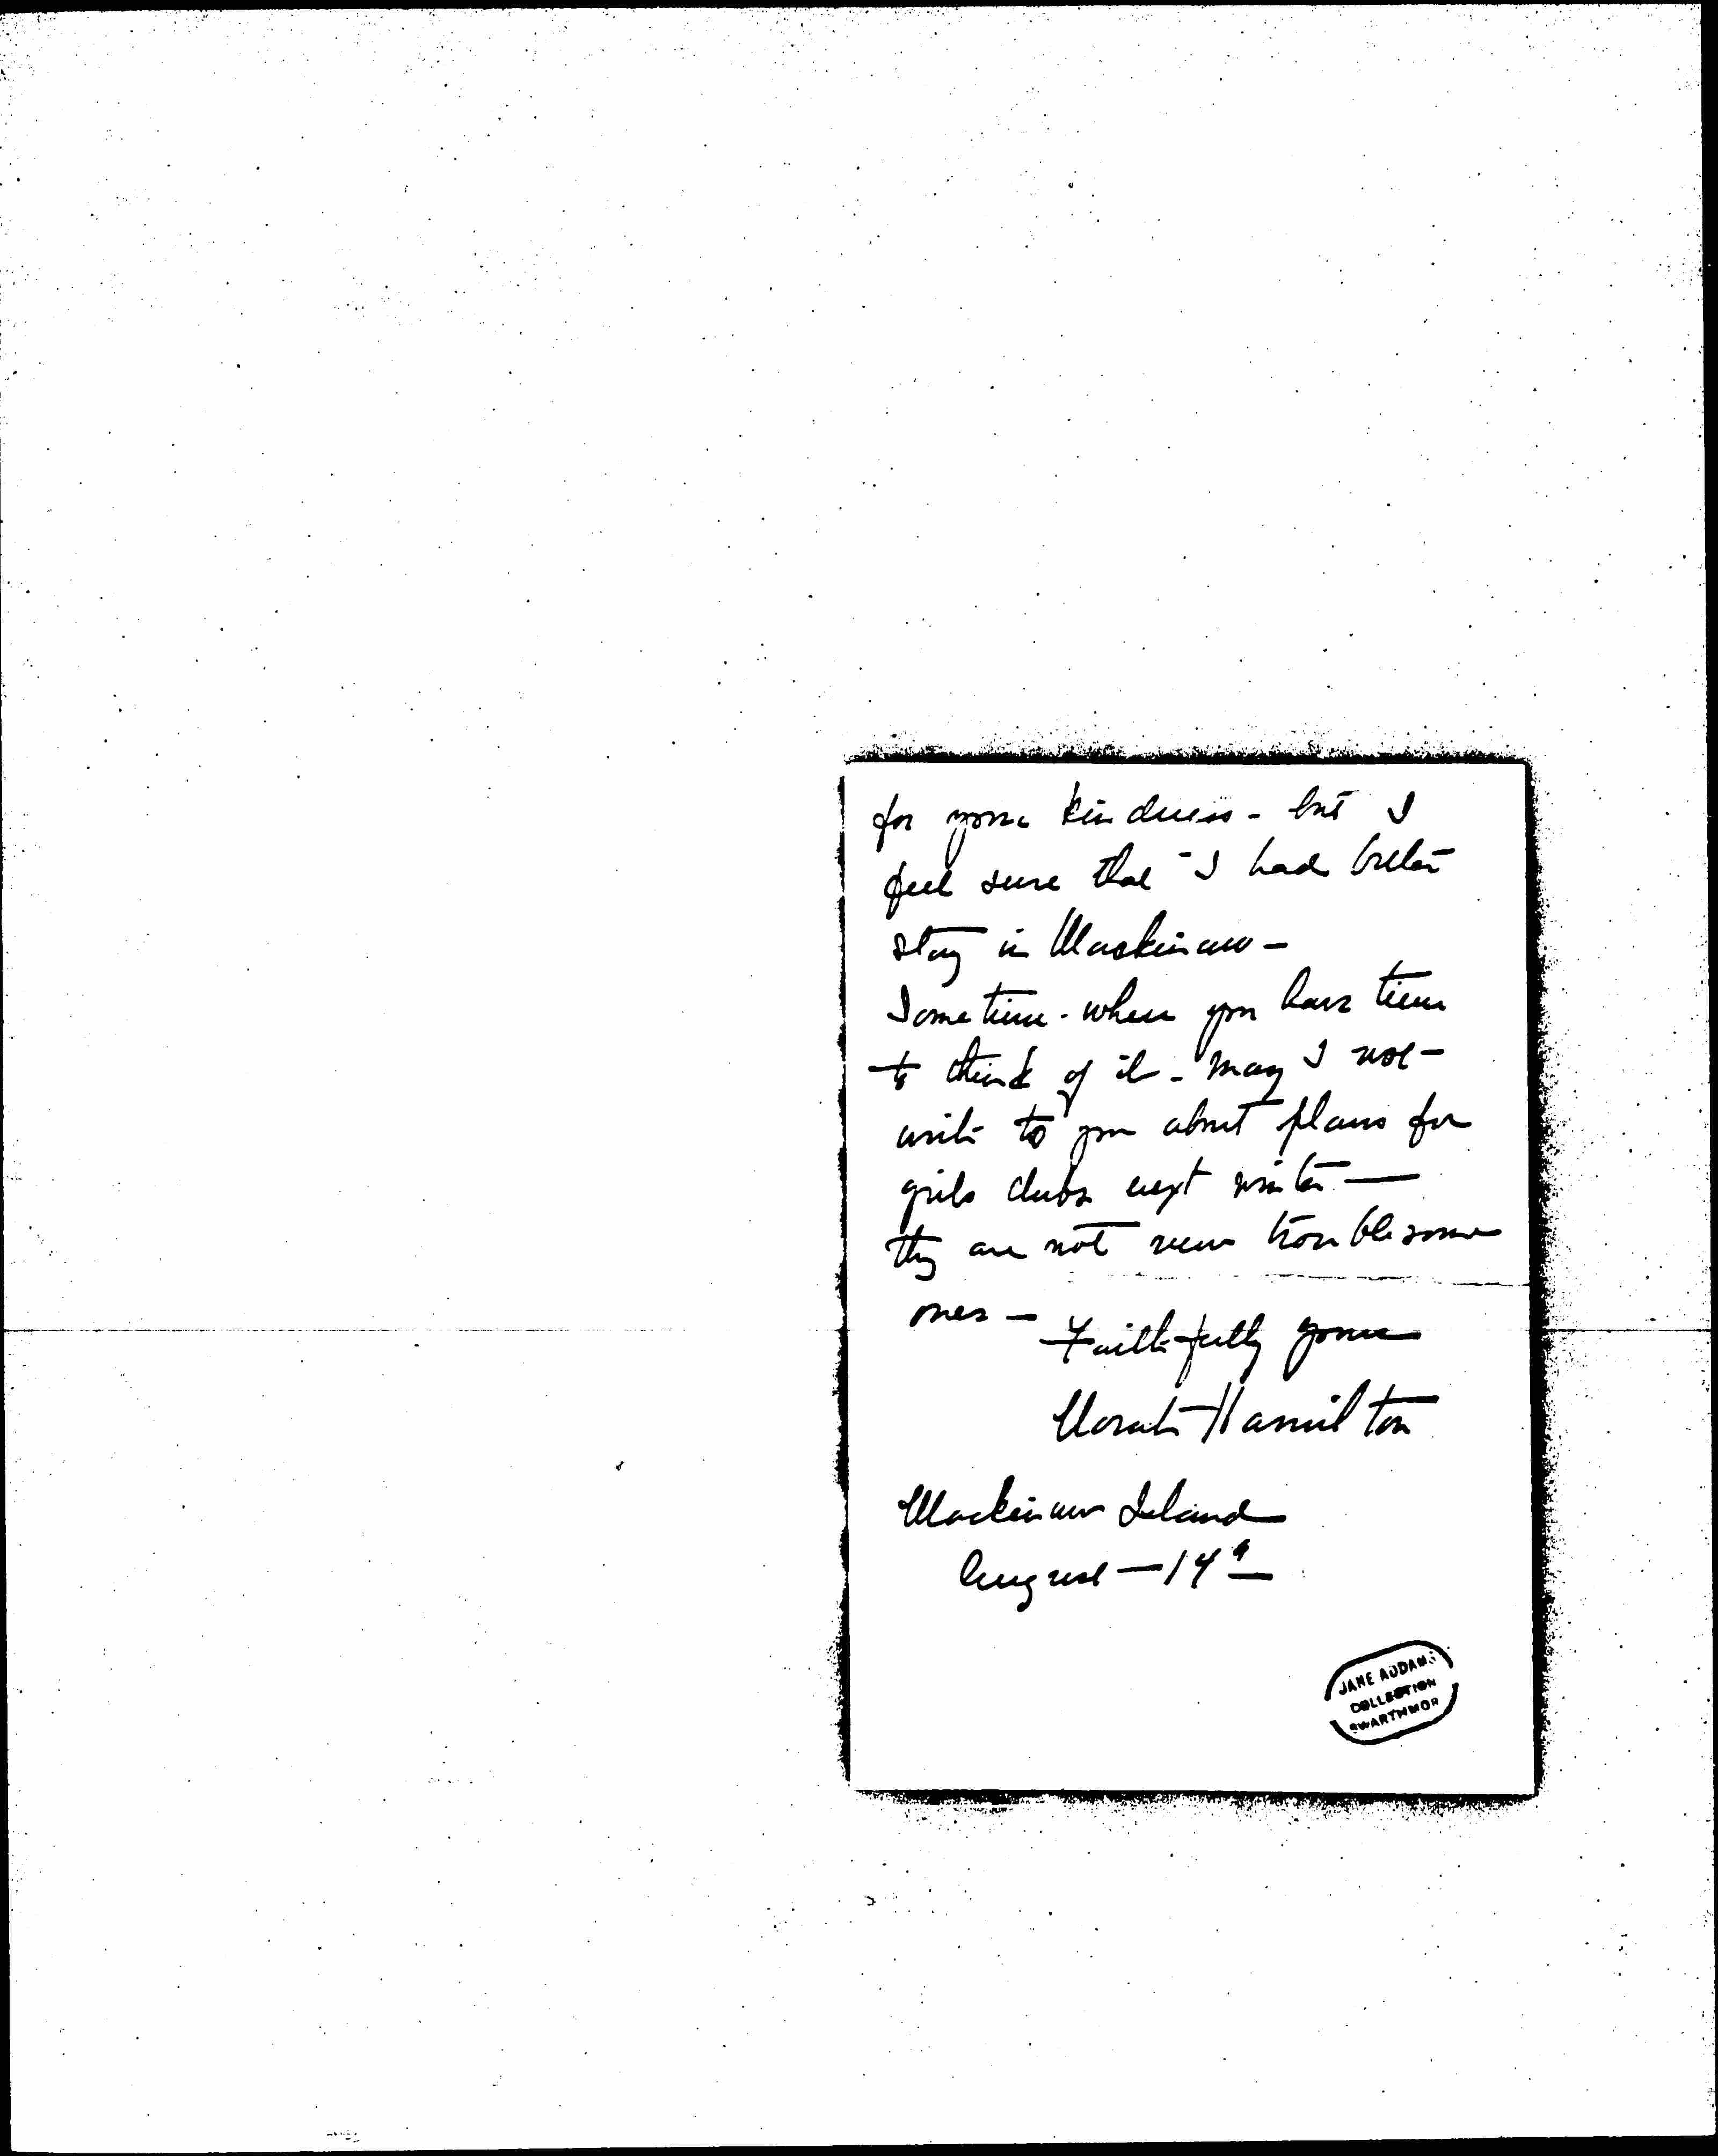 for your kindness - but I
feel sure that I had better
stay in Mackinaw -
Sometime - when you have time
to think of it - may I not -
write to you about plans for
girls clubs next winter —
they are not very troublesome
ones —
Faithfully yours
Norah Hamilton
Mackinaw Island
August — 14th
JANE ADDAMS
COLLECTION
SWARTHMOR